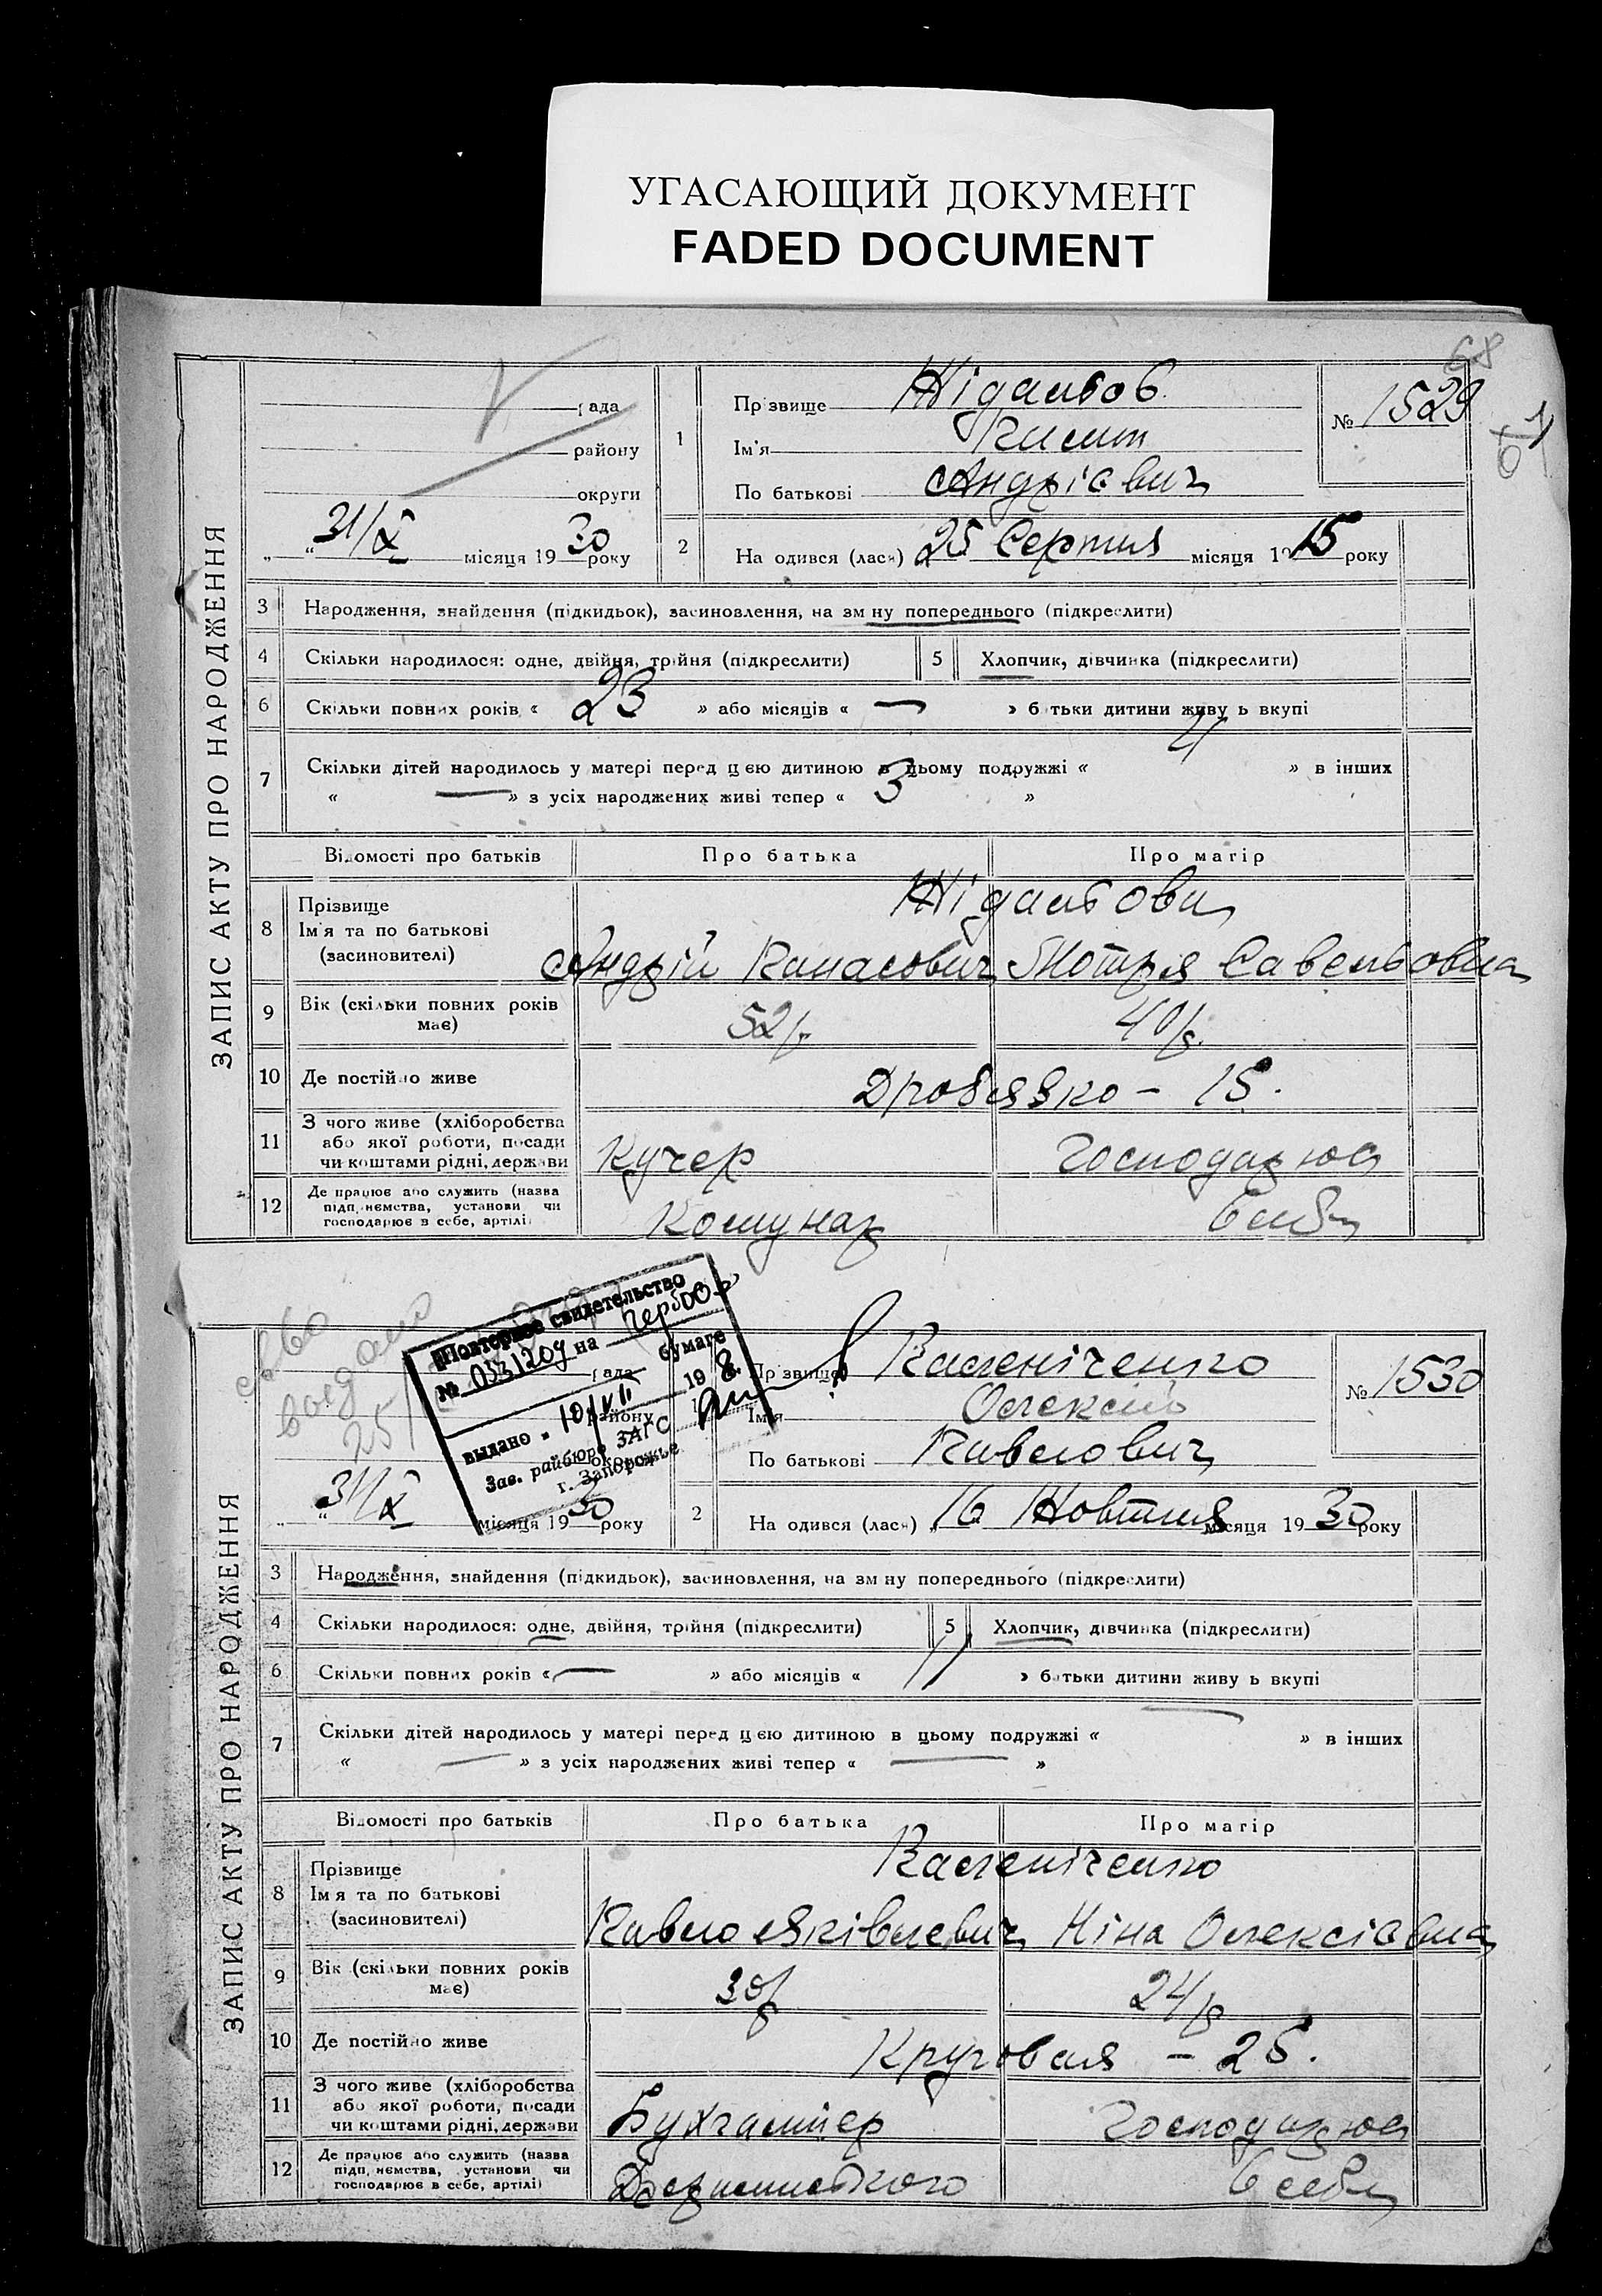 УГАСАЮЩИЙ ДОКУМЕНТ
FADED DOCUMENT
68
61
ЗАПИС АКТУ ПРО НАРОДЖЕННЯ
рада
району
округи
„ “ 31/X місяця 1930 року
1
Прізвище
Ім'я
По батькові Андрієвич
№ 1529
2
На одився (лась) 25 Серпня місяця 1915 року
3 Народження, знайдення (підкидьок), засиновлення, на зм ну попереднього (підкреслити)
4 Скільки народилося: одне, двійня, трійня (підкреслити)
5 Хлопчик, дівчинка (підкреслити)
6 Скільки повних років « 23 » або місяців « — » батьки дитини живу ь вкупі
7 Скільки дітей народилось у матері перед цією дитиною в цьому подружжі « 4 » в інших
« — » з усіх народжених живі тепер « 3 »
Відомості про батьків
Про батька
Про матір
8 Прізвище
Ім'я та по батькові
(засиновителі)
Андрій Панасович Мотря Савельовна
9 Вік (скільки повних років
має)
52 р.
40 р.
10 Де постійно живе
Дробязко – 15.
11 З чого живе (хліборобства
або якої роботи, посади
чи коштами рідні, держави
Кучер
Господарює
12 Де працює або служить (назва
підп, немства, установи чи
господарює в себе, артілі)
Комунар
В себе
ЗАПИС АКТУ ПРО НАРОДЖЕННЯ
Повторное свидетельство
№ на герб
бумаге
выдано „ 10/VII 19
Зав. райбюро ЗАГС
г. Запорожье
рада
району
округи
„ “ 31/X місяця 1930 року
1
Прізвище
Ім'я Олексій
По батькові Павлович
№ 1530
2
На одився (лась) „ 16 Жовтня місяця 1930 року
3 Народження, знайдення (підкидьок), засиновлення, на зм ну попереднього (підкреслити)
4 Скільки народилося: одне, двійня, трійня (підкреслити)
5 Хлопчик, дівчинка (підкреслити)
6 Скільки повних років « — » або місяців « 11 » батьки дитини живу ь вкупі
7 Скільки дітей народилось у матері перед цією дитиною в цьому подружжі « — » в інших
« — » з усіх народжених живі тепер « — »
Відомості про батьків
Про батька
Про матір
8 Прізвище
Ім'я та по батькові
(засиновителі)
Павло Яківлевич Ніна Олексієвна
9 Вік (скільки повних років
має)
30 р
24 р
10 Де постійно живе
Кругова – 25.
11 З чого живе (хліборобства
або якої роботи, посади
чи коштами рідні, держави
Бухгалтер
Господарює
12 Де працює або служить (назва
підп, немства, установи чи
господарює в себе, артілі)
В себе